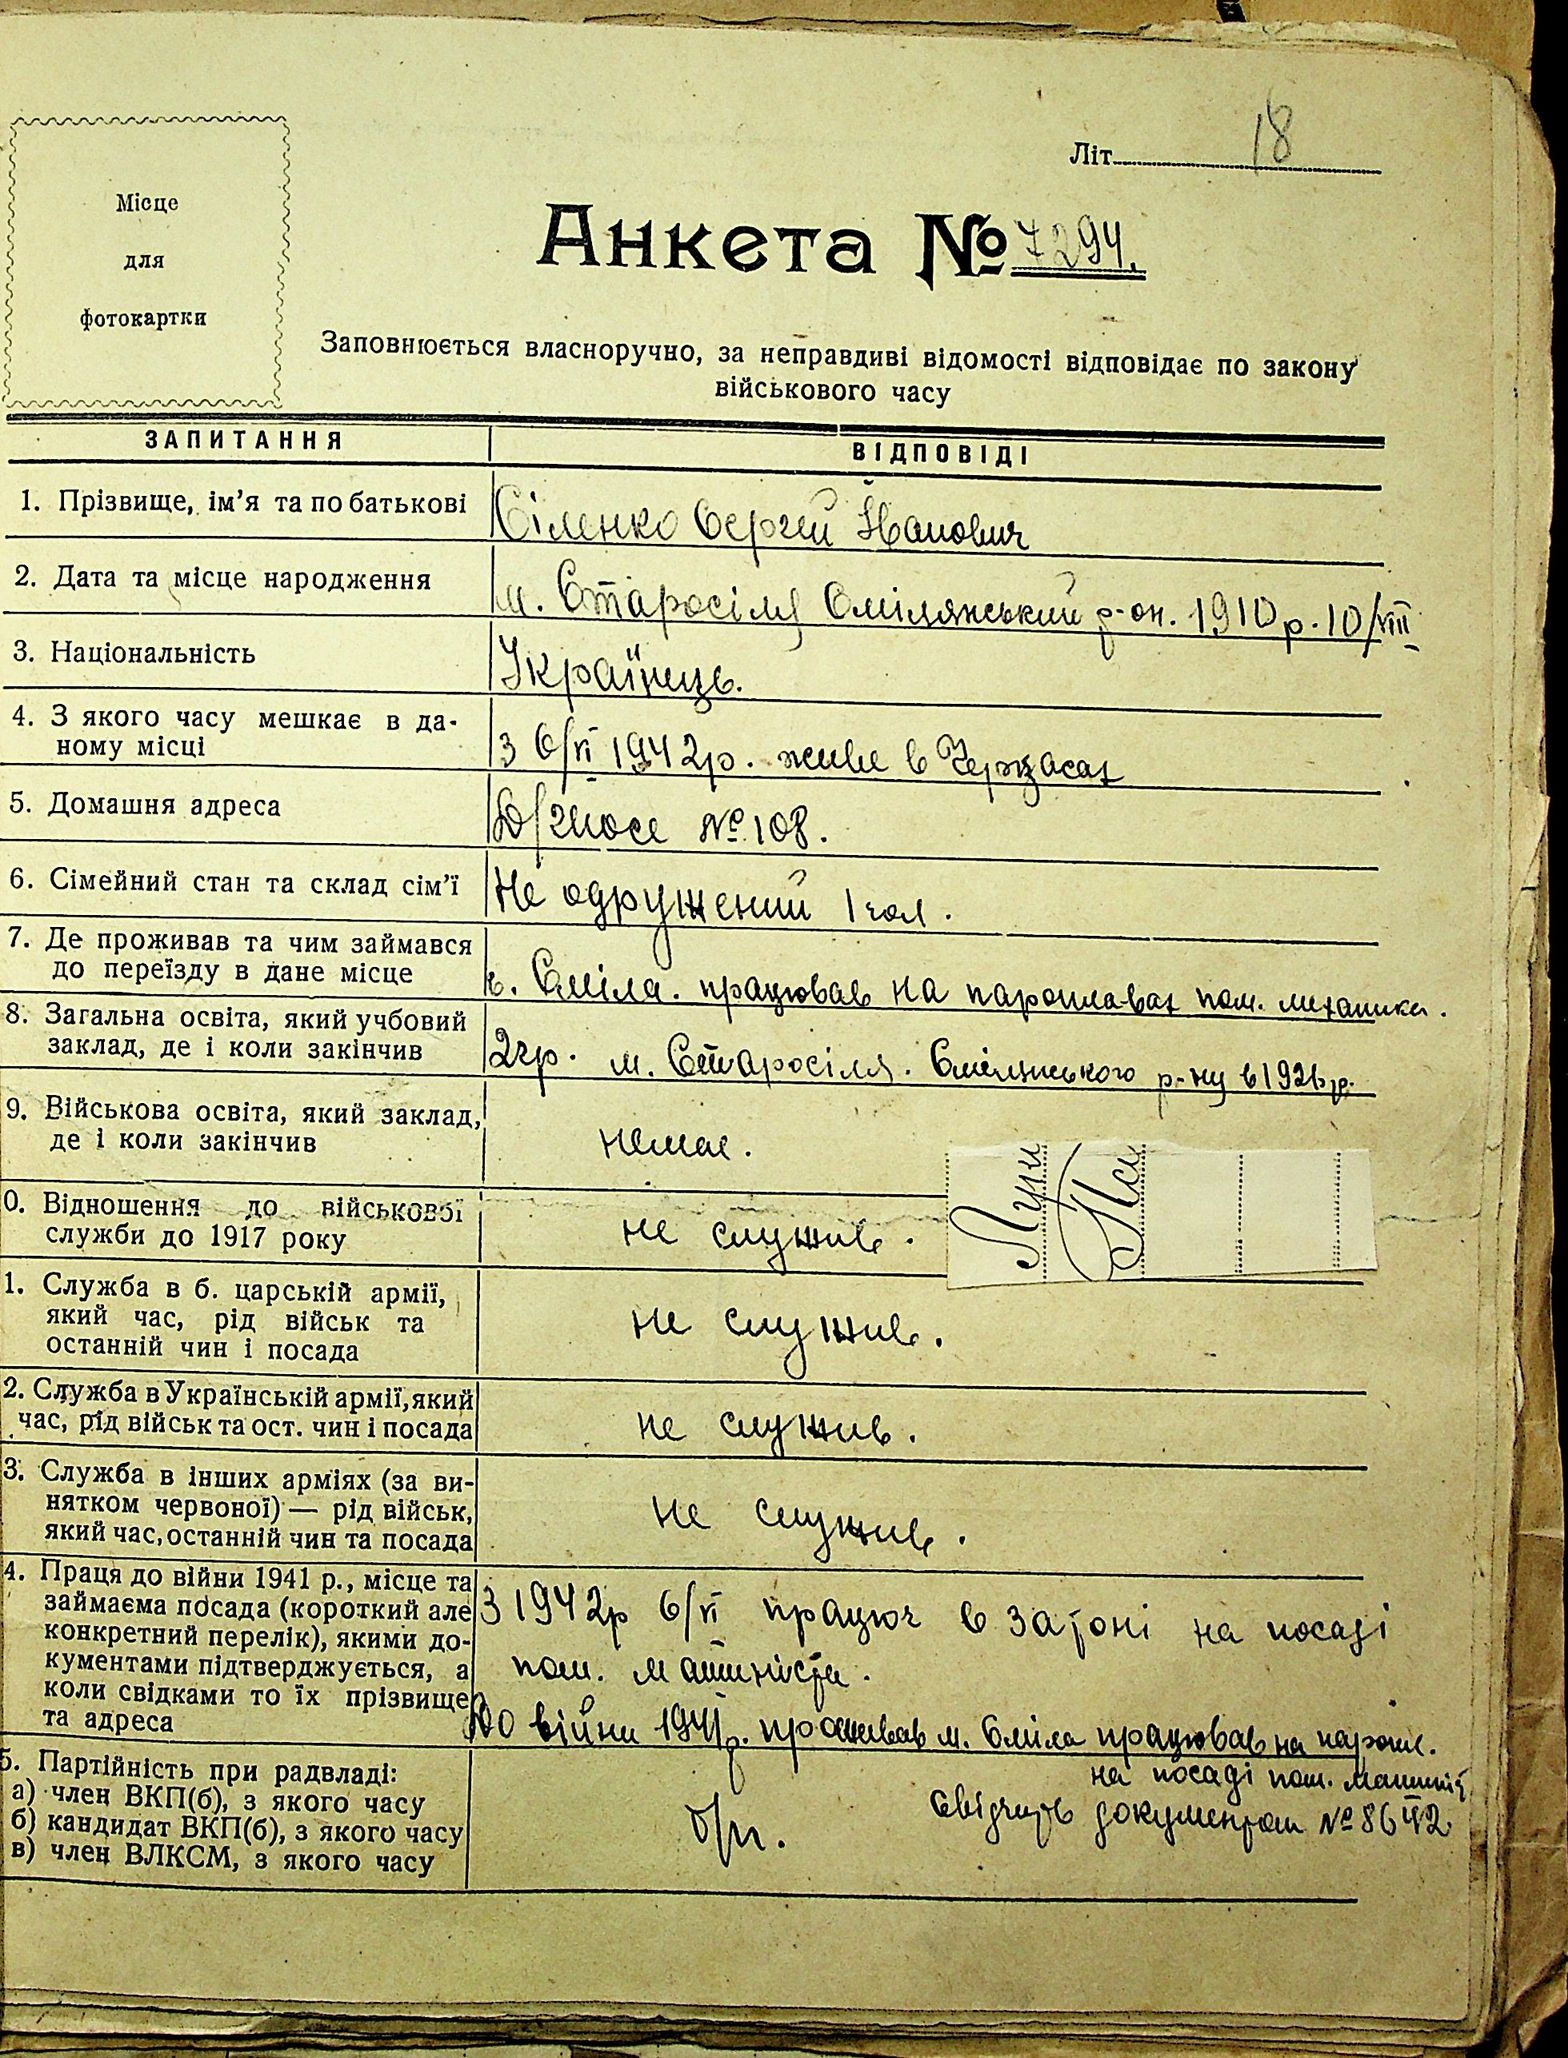 Літ. 18
Місце
для
фотокартки
Анкета № 7294.
Заповнюється власноручно, за неправдиві відомості відповідає по закону
військового часу
ЗАПИТАННЯ
ВІДПОВІДІ
1. Прізвище, ім'я та по батькові
Сіленко Сергій Іванович
2. Дата та місце народження
м. Старосілля Смілянський р-он. 1910 р. 10/VIII
3. Національність
Українець.
4. З якого часу мешкає в да-
ному місці
З 6/VI 1942р. живе в Черкасах
5. Домашня адреса
№ 108.
6. Сімейний стан та склад сім'ї
Не одружений 1 чол.
7. Де проживав та чим займався
до переїзду в дане місце
Сміла. працював на пароплавах пом. механика.
8. Загальна освіта, який учбовий
заклад, де і коли закінчив
2 гр. м. Старосілля. Смілянського р-ну в
9. Військова освіта, який заклад,
де і коли закінчив
немає.
0. Відношення до військової
служби до 1917 року
не служив.
1. Служба в б. царській армії,
який час, рід військ та
останній чин і посада
не служив.
2. Служба в Українській армії, який
час, рід військ та ост. чин і посада
не служив.
3. Служба в інших арміях (за ви-
нятком червоної) — рід військ,
який час, останній чин та посада
не служив.
4. Праця до війни 1941 р., місце та
займаєма посада (короткий але
конкретний перелік), якими до-
кументами підтверджується, а
коли свідками то їх прізвище
та адреса
З 1942р 6/VI працює в Затоні на посаді
пом. машиніста.
До війни 1941р. проживав м. Сміла працював на паропл.
на посаді пом. машиніс
свідчить документом № 8642
5. Партійність при радвладі:
а) член ВКП(б), з якого часу
б) кандидат ВКП(б), з якого часу
в) член ВЛКСМ, з якого часу
б/п.